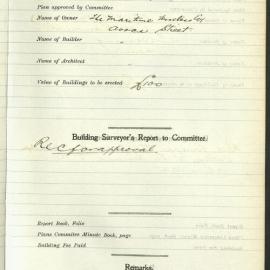 Plan approved by Committee
Name of Owner The Maritime
Street
Name of Builder
Name of Architect
Value of Buildings to be erected £100
Building Surveyor's Report to Committee.
Rec for approval
Report Book, Folio
Plans Committee Minute Book, page
Building Fee Paid
Remarks.